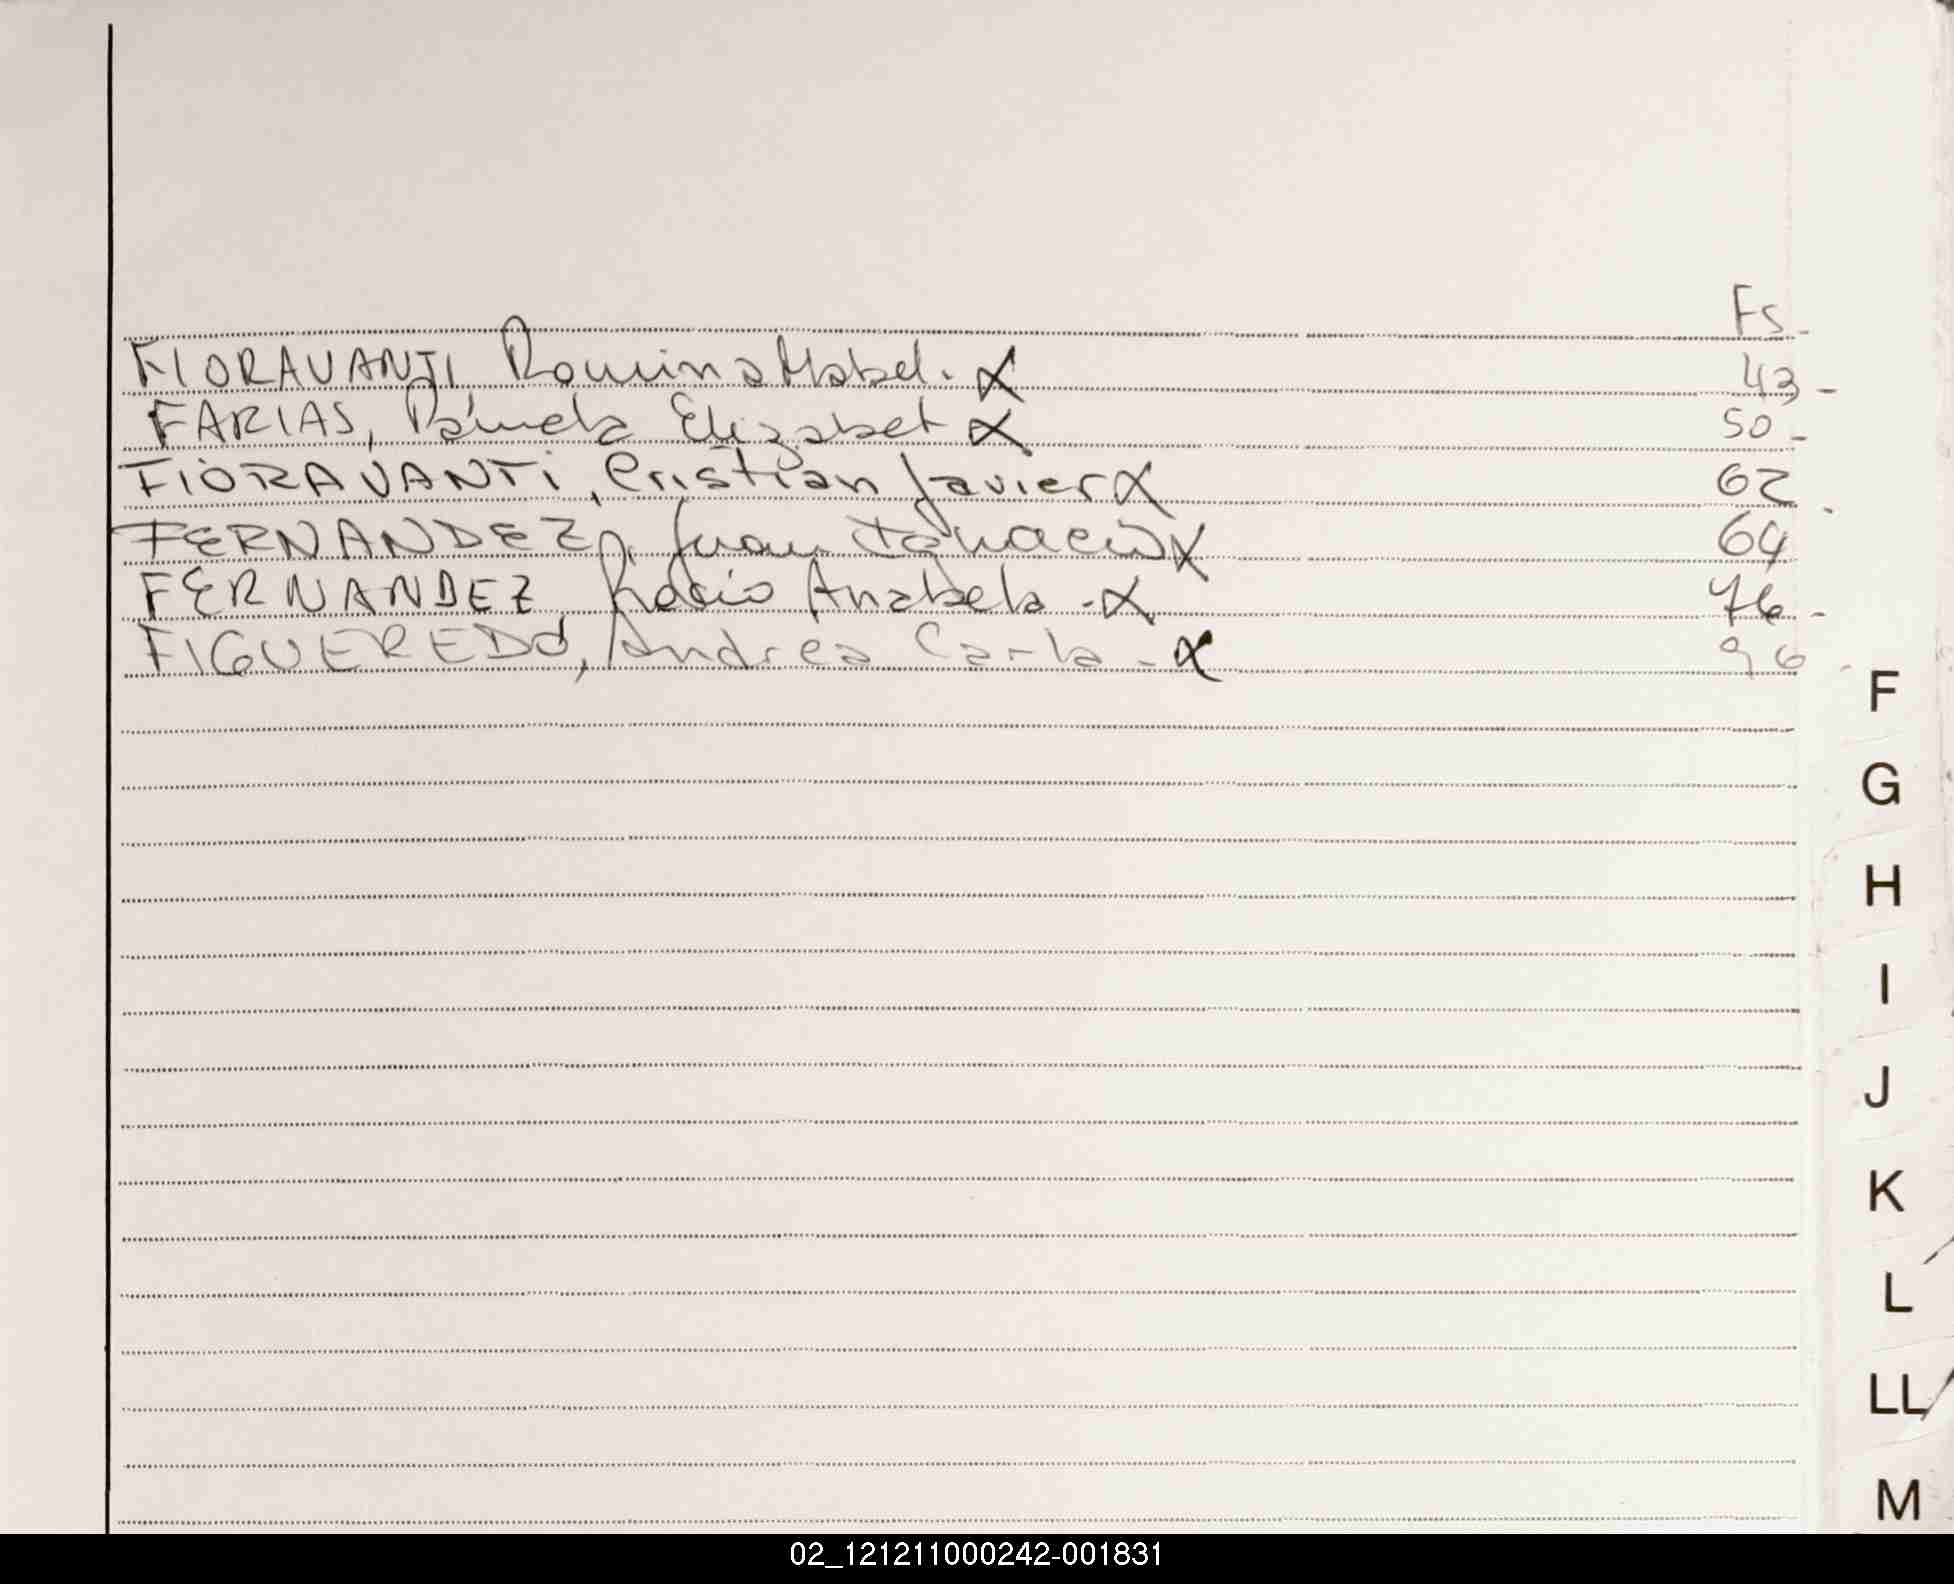 Fs.
FIORAVANTI, Romina Mabel. X 43-
FARIAS, Pámela Elizabet X 50-
FIORAVANTI, Cristian Javier X 62.
FERNANDEZ, Juan Ignacio X 64
FERNANDEZ Rocío Anabela.- X 76-
FIGUEREDO, Andrea Carla.- X 96
F
G
H
I
J
K
L
LL
M
02_121211000242-001831